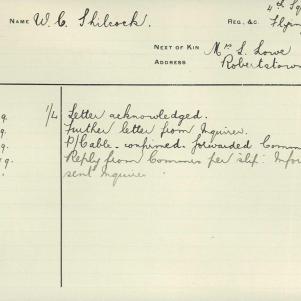 NAME W. C. Shilcock. REG. &C. 4th Sq
Flyin
NEXT OF KIN Mrs S. Lowe
ADDRESS Robertstown
9. 1/4 Letter acknowledged.
9. Further letter from Inquirer.
9. P/Cable confirmed forwarded Comm
9. Reply from Commrs per slip. Infor
sent Inquirer